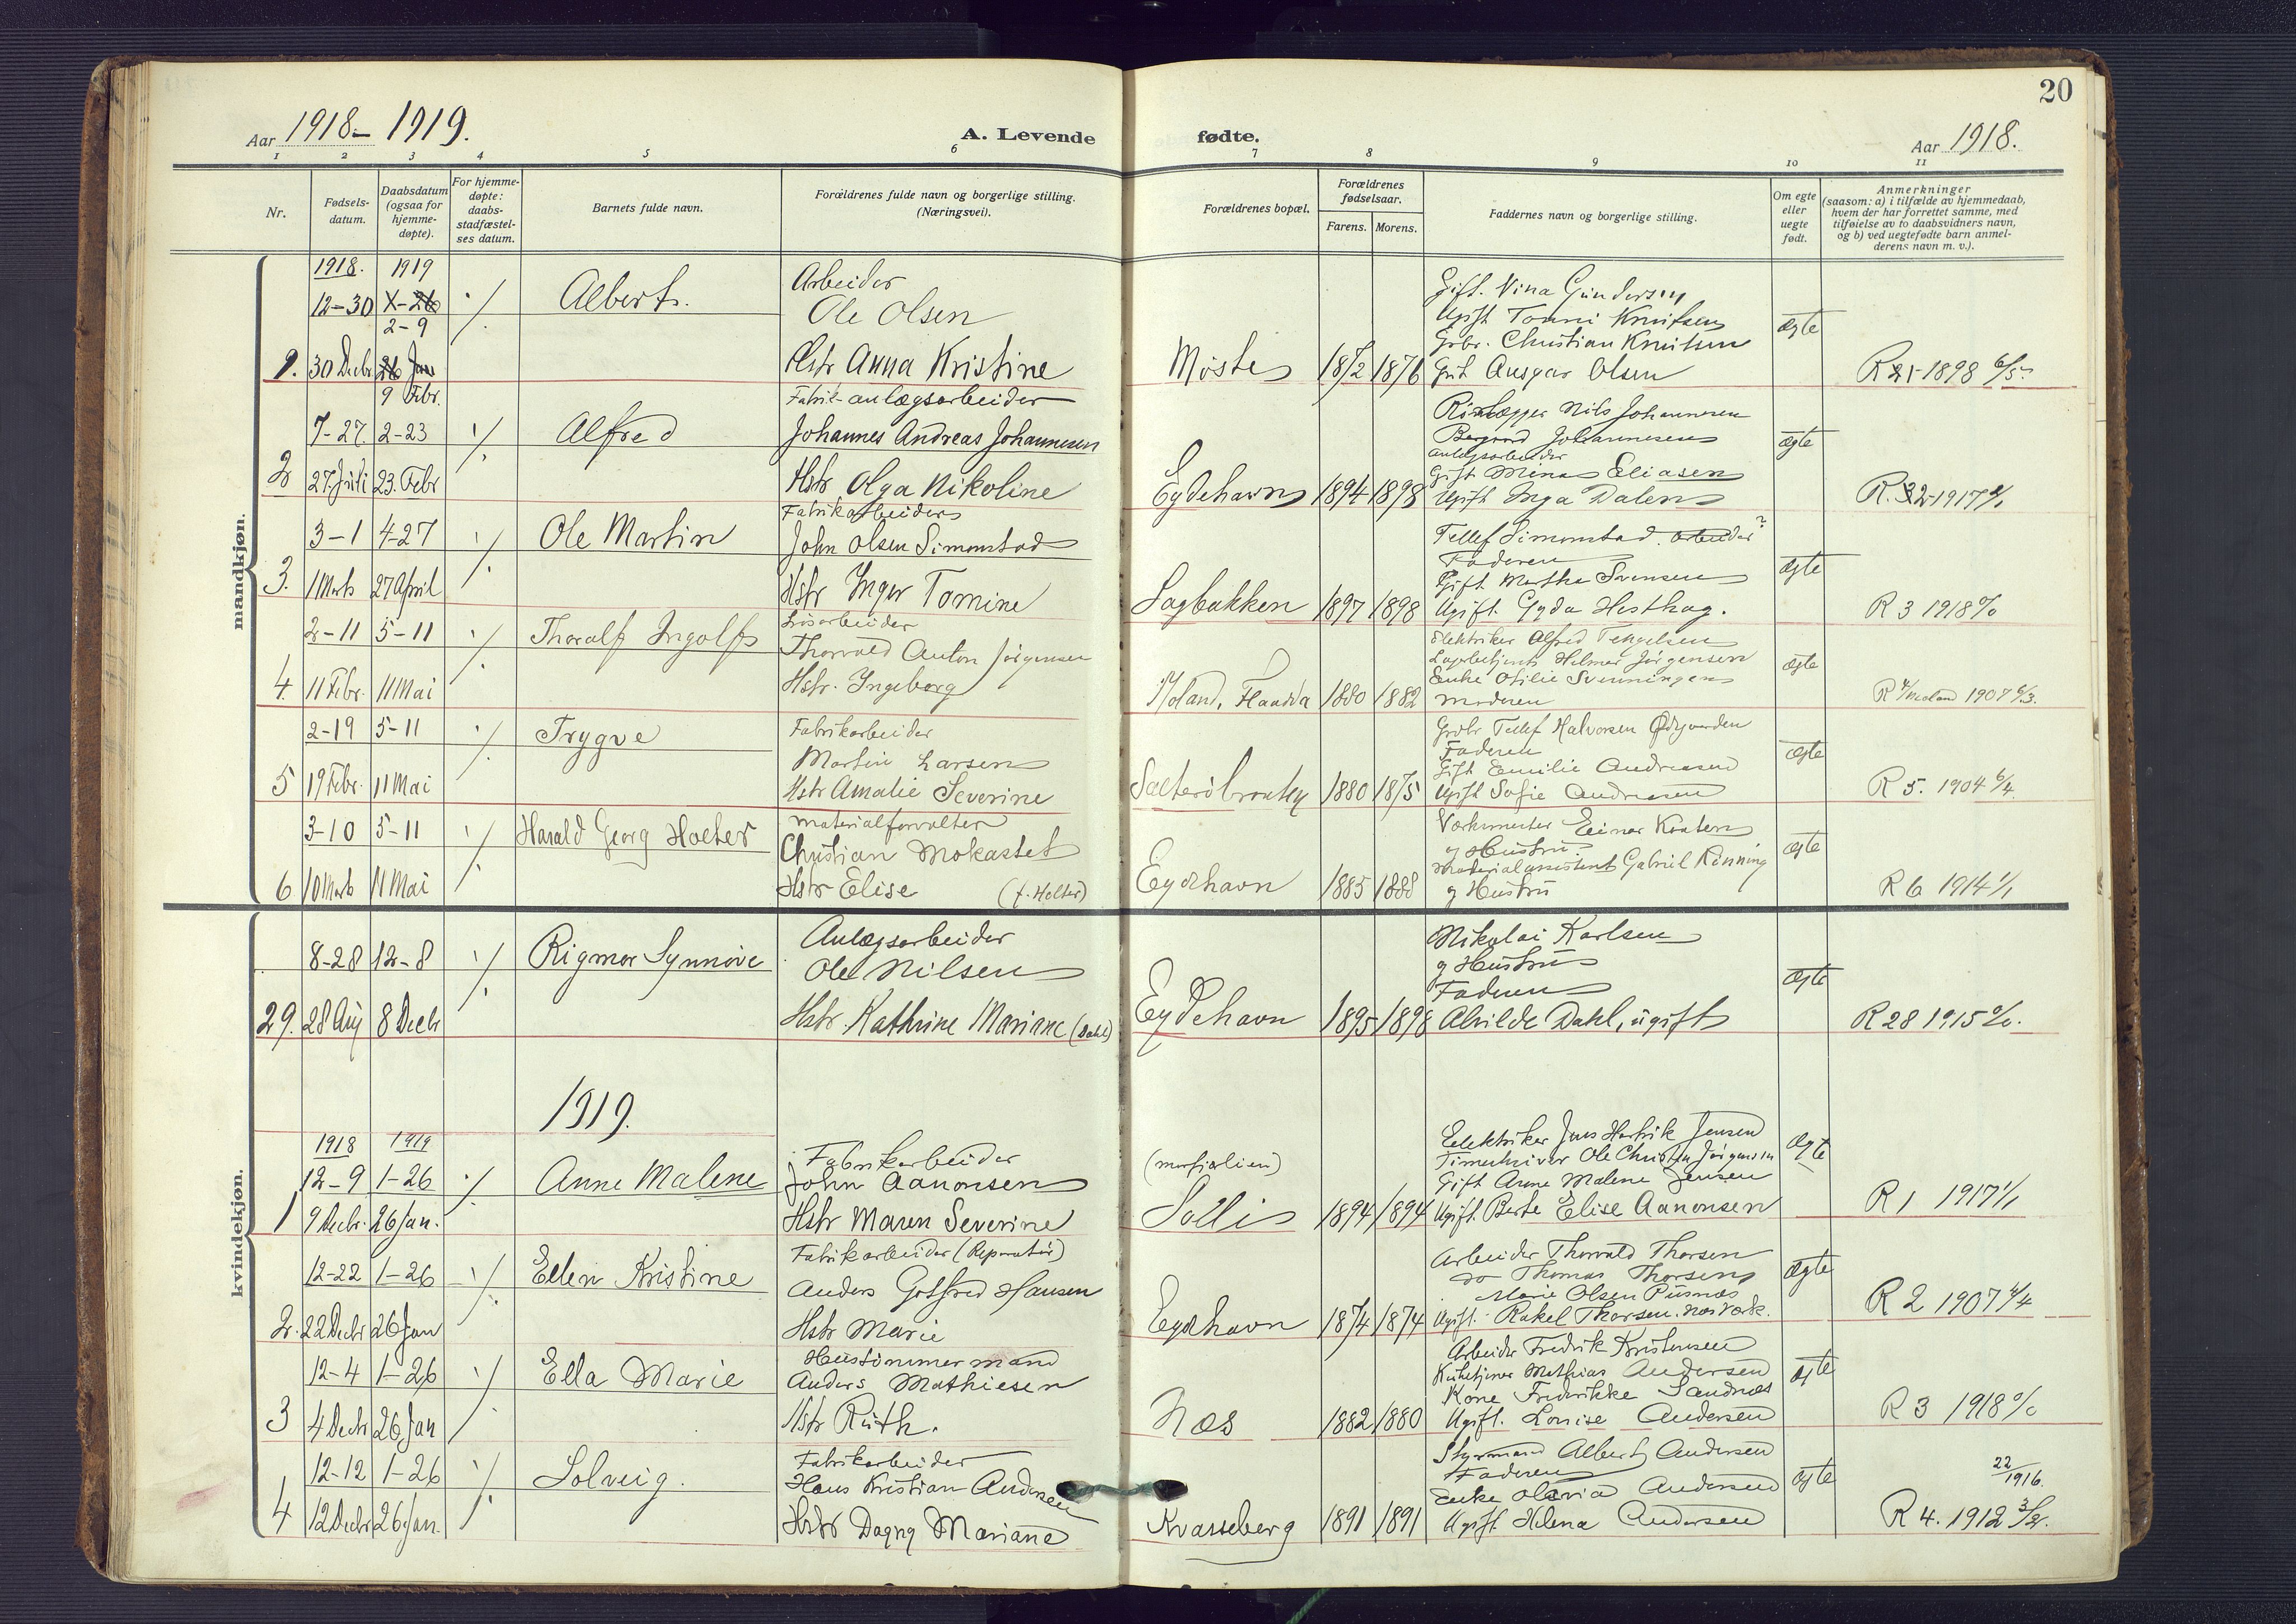 20
Aar 1918 - 1919.
A. Levende fødte.
Aar 1918.
1 2 3 4 5 6 7 8 9 10 11
Nr.
Fødsels-
datum.
Daabsdatum
(ogsaa for
hjemme-
døpte).
For hjemme-
døpte:
daabs-
stadfæstel-
ses datum.
Barnets fulde navn.
Forældrenes fulde navn og borgerlige stilling.
(Næringsvei).
Forældrenes bopæl.
Forældrenes
fødselsaar.
Farens. Morens.
Faddernes navn og borgerlige stilling.
Om egte
eller
uegte
født.
Anmerkninger
(saasom: a) i tilfælde av hjemmedaab,
hvem der har forrettet samme, med
tilføielse av to daabsvidners navn,
og b) ved uegtefødte barn anmel-
derens navn m. v.).
mandkjøn.
1918. 1919
12-30 1-26 Albert. Arbeider
2-9 Ole Olsen
1. 30 Decbr 26 Jan Hstr Anna Kristine
9 Febr.
Møste 1872 1876
Gift. Nina Gundersen
Ugift Tomni Knutsen
Grbr. Christian Knutsen
Grb Ansgar Olsen
ægte
R 21-1898 6/5.
7-27. 2-23 Alfred Fabrik-anlægsarbeider
Johannes Andreas Johannesen
2 27. Juli 23. Febr Hstr Olga Nikoline
Eydehavn 1894 1898
Nils Johannesen
Johannesen
anlægsarbeider
Gift Mina Eliasen
Ugift Inga Dalen
ægte
R. 32-1917
3-1 4-27 Ole Martin Fabrikarbeider
John Olsen Simonstad
3. 1 Marts 27 April Hstr Inger Tomine
Sagbakken 1897 1898
Tellef Simonstad. Arbeider?
Faderen
Gift Marthe Svensen
Ugift Gyda Hesthag.
ægte
R 3 1918 %
2-11 5-11 Thoralf Ingolf Løsarbeider
Thorvald Anton Jørgensen
4. 11 Febr. 11 Mai Hstr. Ingeborg
Moland, Flaadda 1880 1882
Elektriker Alfred Tengelsen
Lagerbetjent Helmer Jørgensen
Enke Otilie Svenningsen
Moderen
ægte
R 4/Moland 1907 6/3.
2-19 5-11 Trygve Fabrikarbeider
Martin Larsen
5 19 Febr. 11 Mai Hstr Amalie Severine
1880 1875
Grbr Tellef Halvorsen Ødegaarden
Faderen
Gift Emilie Andreasen
Ugift Sofie Andreasen
ægte
R 5. 1904 6/4.
3-10 5-11 Harald Georg Holter Materialforvalter
Christian Mokastet
6 10 Marts 11 Mai Hstr Elise (f. Holter)
Eydehavn 1885 1888
Værkmester Einar Knatem
og Hustru.
Materialassistent Gabriel Rønning
og Hustru
ægte
R 6 1914 1/1
kvindekjøn.
8-28 12-8 Rigmor Synnøve Anlægsarbeider
Ole Nilsen
29. 28 Aug 8 Decbr Hstr. Kathrine Mariane (Dahl)
Eydehavn 1895 1898
Nikolai Karlsen
og Hustru
Faderen
Alvilde Dahl, ugift
ægte
R 28 1915 %.
1919.
1918 1919
12-9 1-26 Anne Malene Fabrikarbeider
John Aanonsen
1 9 Decbr. 26 Jan. Hstr Maren Severine
Sollie 1894 1894
Elektriker Jens Hartvik Jensen
Timeskriver Ole Christen Jørgensen
Gift Anne Malene Jensen
Ugift. Berte Elise Aanonsen
ægte
R 1 1917 1/1
12-22 1-26 Ellen Kristine Fabrikarbeider (Reparatør)
Anders Gotfred Hansen
2. 22 Decbr 26 Jan Hstr Marie
Eydehavn 1874 1874
Arbeider Thorvald Thorsen
do Thomas Thorsen
Marie Olsen Pusnes
Ugift. Rakel Thorsen. Næs Værk.
ægte
R 2 1907 4/4
12-4 1-26 Ella Marie Hustømmermand
Anders Mathiesen
3 4 Decbr 26 Jan Hstr Ruth.
Næs 1882 1880
Arbeider Fredrik Kristensen
Kirketjener Mathias Andersen
Kone Fredrikke Sandnæs
Ugift. Lovise Andersen
ægte
R 3 1918 %
12-12 1-26 Solveig. Fabrikarbeider
Hans Kristian Andersen
4 12 Decbr 26 Jan. Hstr Dagny Mariane
Kvasseberg 1891 1891
Styrmand Albert Andersen
Faderen
Enke Olavia Andersen
Ugift. Helena Andersen
ægte
22/1916.
R 4. 1912 3/2.